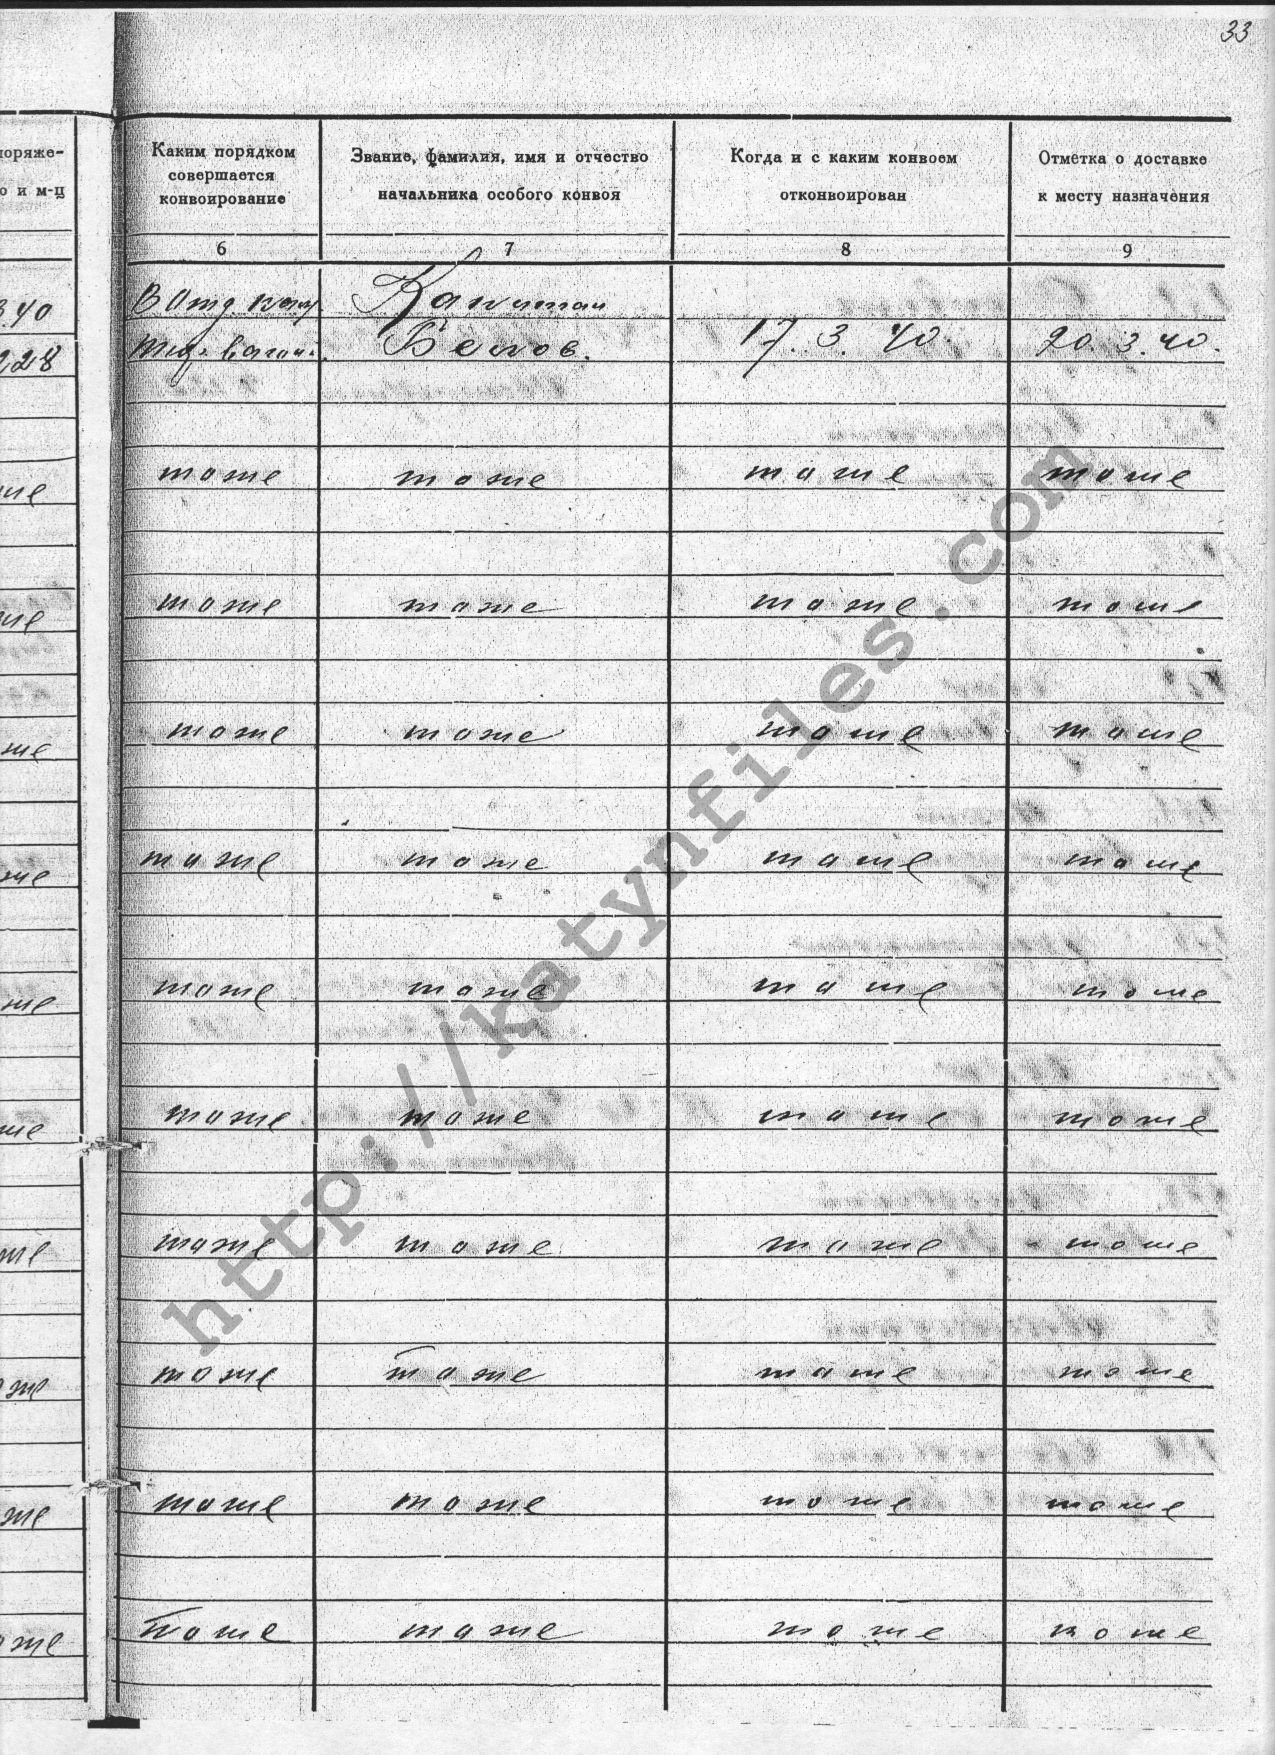 33
поряже-
о и м-ц
Каким порядком
совершается
конвоирование
Звание, фамилия, имя и отчество
начальника особого конвоя
Когда и с каким конвоем
отконвоирован
Отметка о доставке
к месту назначения
6 7 8 9
3.40 В отд. Капитан
228 вагон. Белов. 17.3.40. 20.3.40.
тоже тоже тоже тоже
тоже тоже тоже тоже
тоже тоже тоже тоже
тоже тоже тоже тоже
тоже тоже тоже тоже
тоже тоже тоже тоже
тоже тоже тоже тоже
тоже тоже тоже тоже
тоже тоже тоже тоже
тоже тоже тоже тоже
http://katynfiles.com